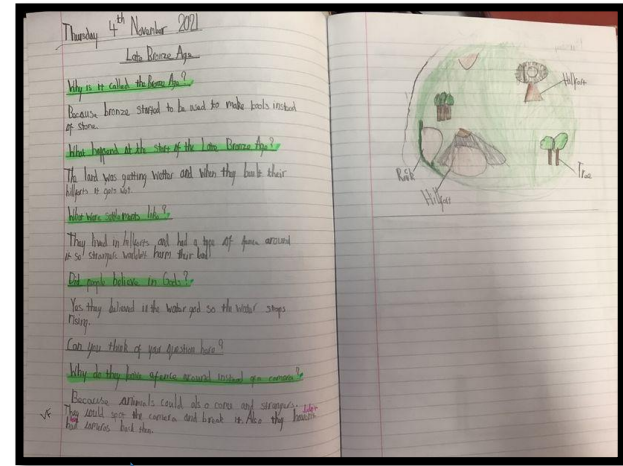 Thursday 4th November 2021
Late Bronze Age
Why is it called the Bronze Age?
Because bronze started to be used to make tools instead
of stone.
What happend at the start of the Late Bronze Age?
The land was getting wetter and when they built their
hillforts it gets wet.
What were settlements like?
They lived in hillforts and had a type of fence around
it so strangers wouldn't harm their land
Did people believe in Gods?
Yes they believed in the water god so the water stops
rising.
Can you think of your question here?
Why do they have a fence around instead of a camera?
Because animals could also come and strangers.
They could spot the camera and break it. Also they
had cameras back then.
Hillfort
Rock
Hillfort
Tree